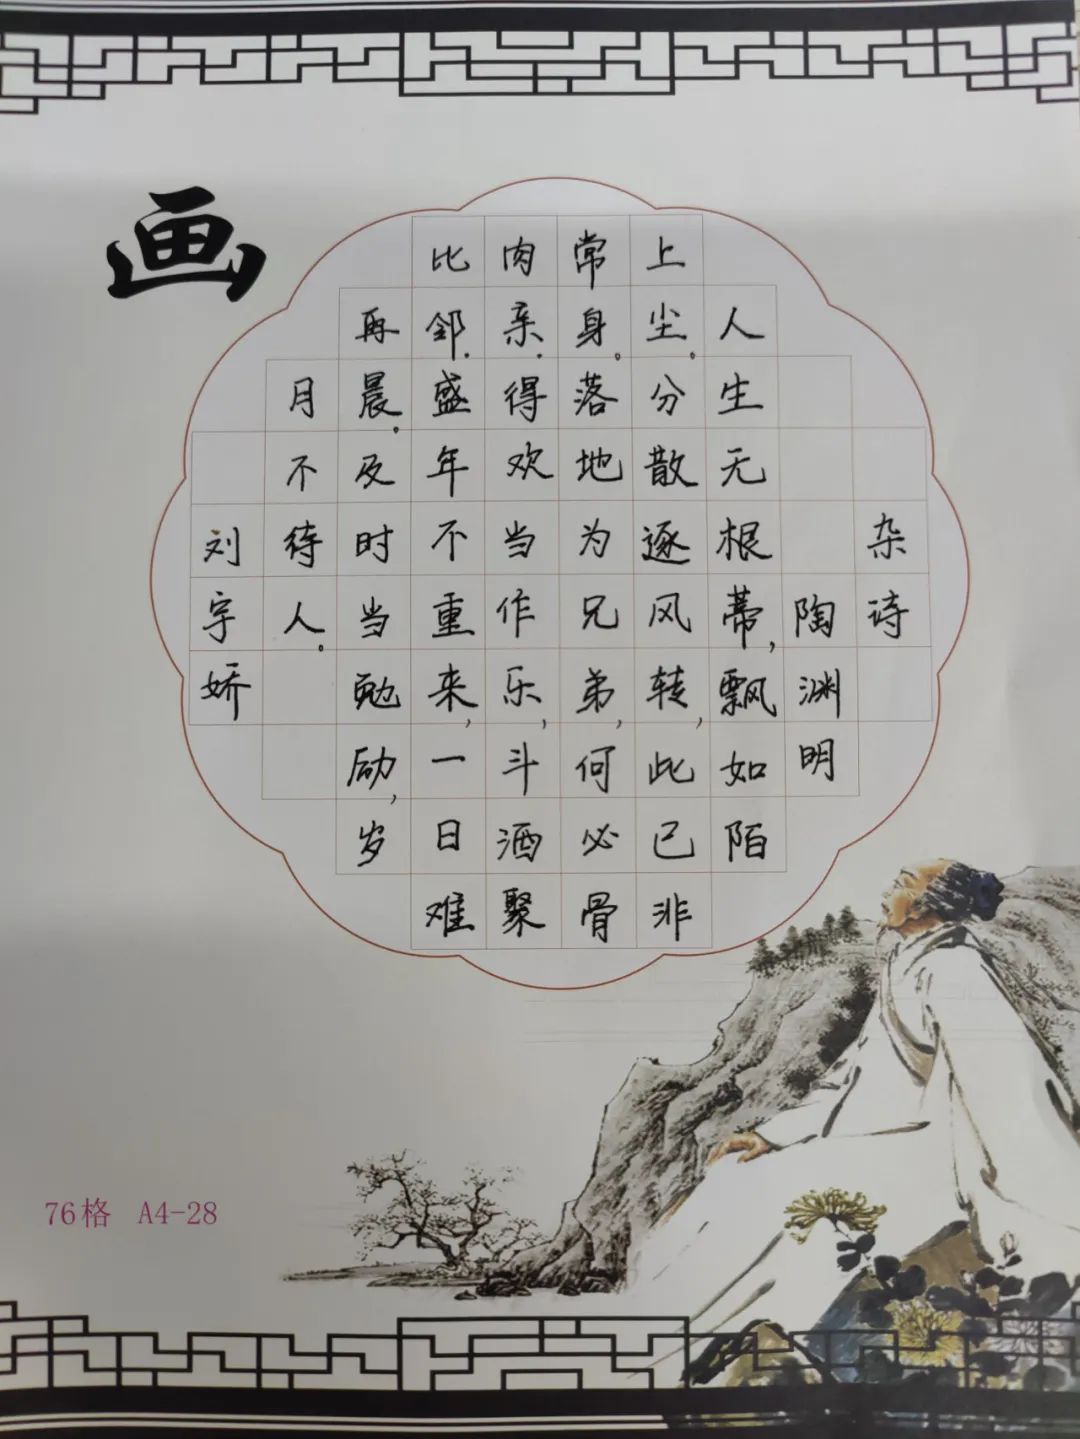 画
杂诗
陶渊明
人生无根蒂,飘如陌
上尘。分散逐风转,此已非
常身。落地为兄弟,何必骨
肉亲.得欢当作乐,斗酒聚
比邻.盛年不重来,一日难
再晨。及时当勉励,岁
月不待人。
刘宇娇
76格 A4-28